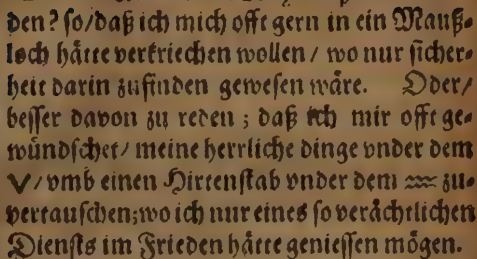 den? so/daß ich mich offt gern in ein Mauß-
loch hätte verkriechen wollen / wo nur sicher-
heit darin zufinden gewesen wäre. Oder/
besser davon zu reden ; daß ich mir offt ge-
wündschet/ meine herrliche dinge vnder dem
V/ vmb einen Hirtenstab vnder dem ♒ zu-
vertauschen;wo ich nur eines so verächtlichen
Diensts im Frieden hätte geniessen mögen.